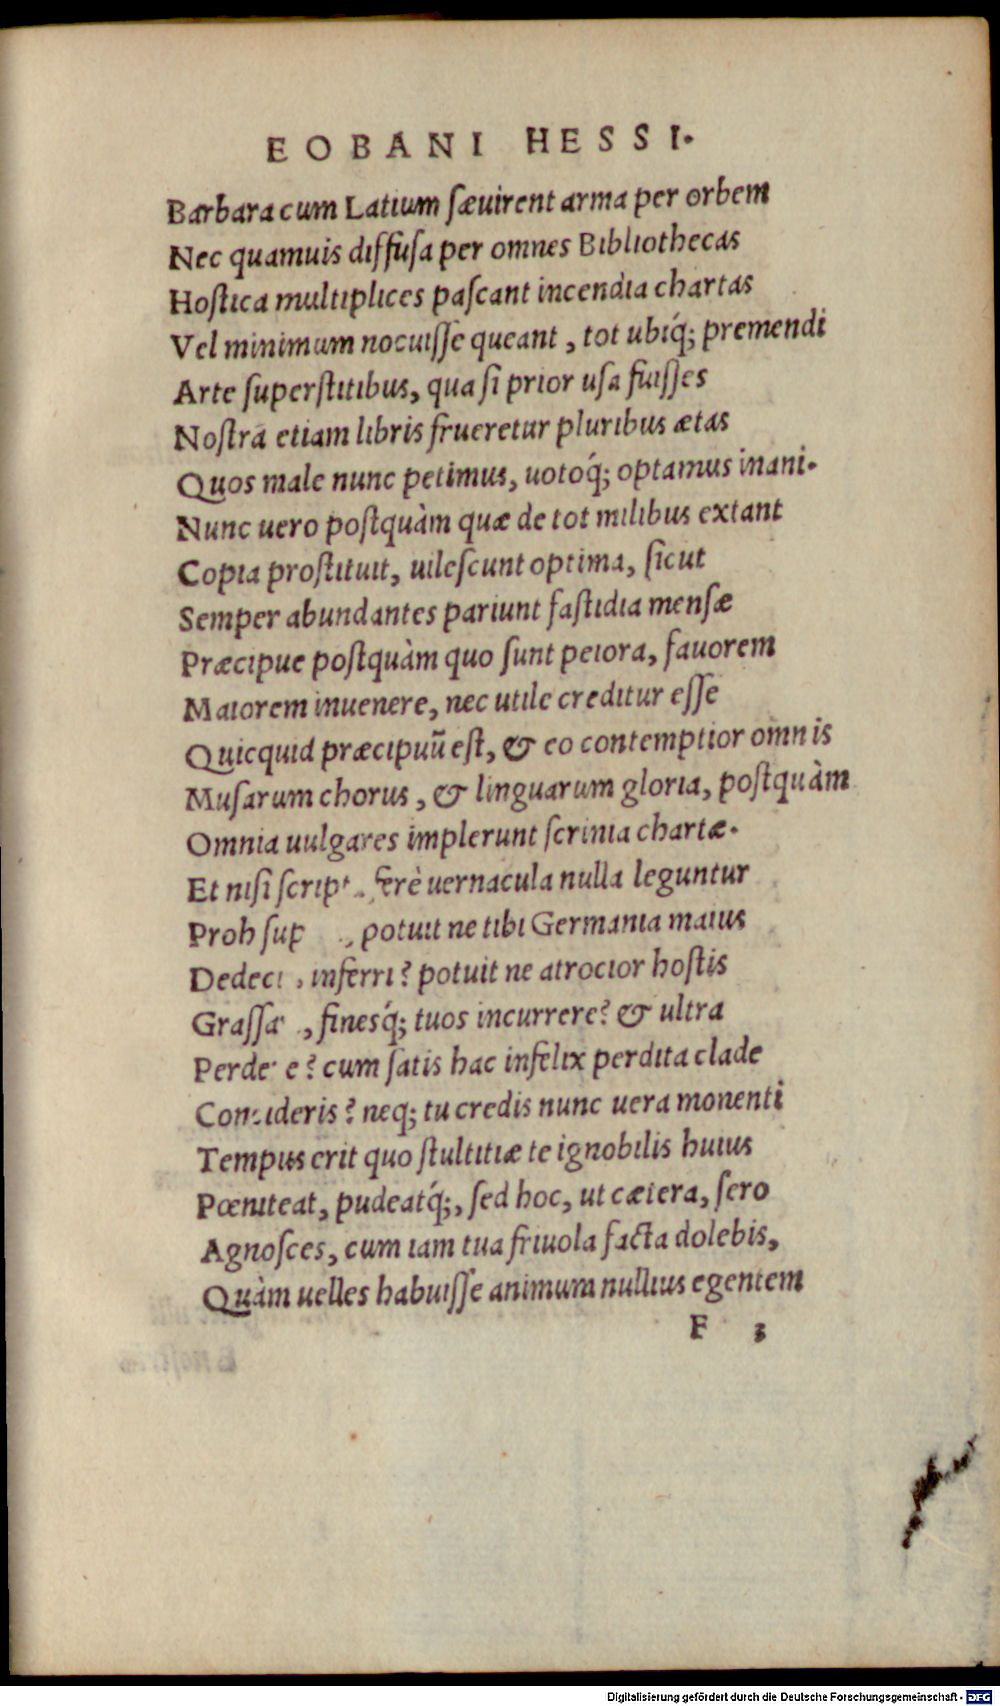 EOBANI HESSI.
Barbara cum Latium sæuirent arma per orbem
Nec quamuis diffusa per omnes Bibliothecas
Hostica multiplices pascant incendia chartas
Vel minimum nocuisse queant, tot ubiq́; premendi
Arte superstitibus, qua si prior usa fuisses
Nostra etiam libris frueretur pluribus ætas
Quos male nunc petimus, uotoq́; optamus inani.
Nunc uero postquàm quæ de tot milibus extant
Copia prostituit, uilescunt optima, sicut
Semper abundantes pariunt fastidia mensæ
Præcipue postquàm quo sunt peiora, fauorem
Maiorem inuenere, nec utile creditur esse
Quicquid præcipuũ est, & eo contemptior omnis
Musarum chorus, & linguarum gloria, postquàm
Omnia uulgares implerunt scrinia chartæ.
Et nisi ferè uernacula nulla leguntur
Proh potuit ne tibi Germania maius
inferri? potuit ne atrocior hostis
finesq́; tuos incurrere? & ultra
cum satis hac infelix perdita clade
neq; tu credis nunc uera monenti
Tempus erit quo stultitiæ te ignobilis huius
Pœniteat, pudeatq́;, sed hoc, ut cætera, sero
Agnosces, cum iam tua friuola facta dolebis,
Quàm uelles habuisse animum nullius egentem
F 3
Digitalisierung gefördert durch die Deutsche Forschungsgemeinschaft - DFG